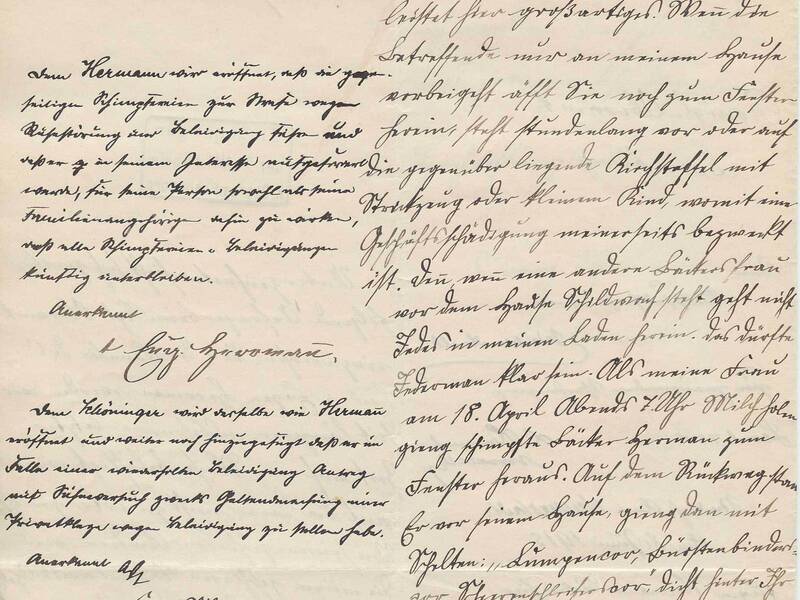 Dem Hermann wird eröffnet, daß die gegen-
seitigen Schimpfereien zur Strafe wegen
Ruhestörung und Beleidigung führe und
daß er in seinem Interesse aufgefordert
werde, für seine Person sowohl als seine
Familienangehörige dahin zu wirken,
daß alle Schimpfereien u. Beleidigungen
künftig unterbleiben.
Anerkannt
Eug. Herrmann.
Dem Klöninger wird dasselbe wie Hermann
eröffnet und weiter noch hinzugefügt daß er im
Falle einer wiederholten Beleidigung Antrag
auf Sühneversuch zwecks Geltendmachung einer
Privatklage wegen Beleidigung zu stellen habe.
Anerkannt
leistet hier großartiges. Wen̄ die
Betreffende nur an meinem Hause
vorbeigeht äfft Sie noch zum Fenster
herein, steht stundenlang vor oder auf
die gegenüber liegende Kirchstaffel mit
Strickzeug oder kleinem Kind, womit eine
Geschäftsschädigung meinerseits bezweckt
ist. Den̄, wen̄ eine andere Bäckersfrau
vor dem Hause Schildwach steht geht nicht
Jedes in meinen Laden herein. das dürfte
Jederman klar sein. Als meine Frau
am 18. April Abends 7 Uhr Milch holen
gieng schimpfte Bäcker Herman zum
Fenster heraus. Auf dem Rückweg stan
Er vor seinem Hause, gieng dan mit
Schelten: „Lumpencor, Bürstenbinders-
cor Scherenschleiferscor", dicht hinter Ihr